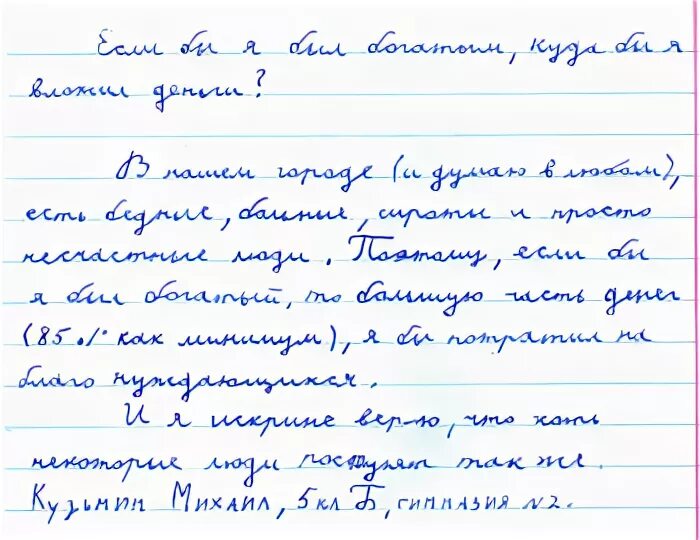 Если бы я был богатым, куда бы я
вложил деньги?
В нашем городе (и думаю в любом),
есть бедные, больные, сироты и просто
несчастные люди. Поэтому, если бы
я был богатый, то большую часть денег
(85 % как минимум), я бы потратил на
благо нуждающихся.
И я искрине верю, что хоть
некоторые люди поступят так же.
Кузьмин Михаил, 5 кл Б, гимназия №2.